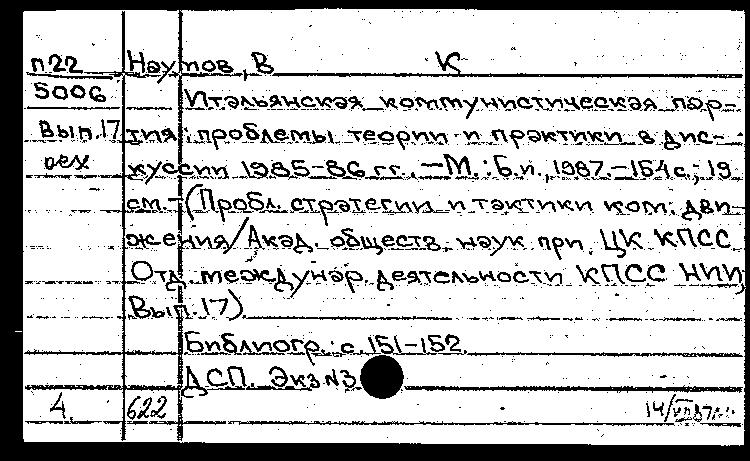 п22 Наумов, В К
5006 Итальянская коммунистическая пар-
Вып.17 тия: проблемы теории и практики в дис-
куссии 1985-86 гг. —М.: Б.и., 1987.-154с.; 19
см.-(Пробл. стратегии и тактики ком. дви-
жения/Акад. обществ. наук при ЦК КПСС
Отд. междунар. деятельности КПСС НИИ,
Вып.17)
Библиогр.: с. 151-152.
ДСП. Экз №3
4. 622 14/VII87